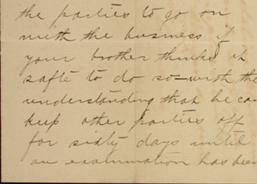 the parties to go on
with the business if
your brother thinks it
safte to do so—with the
understanding that he can
keep other parties off
for sixty days until
an examination has been